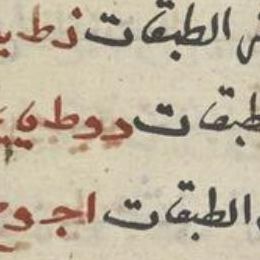 الطبقات زط
طبقات دوطى
الطبقات اجو